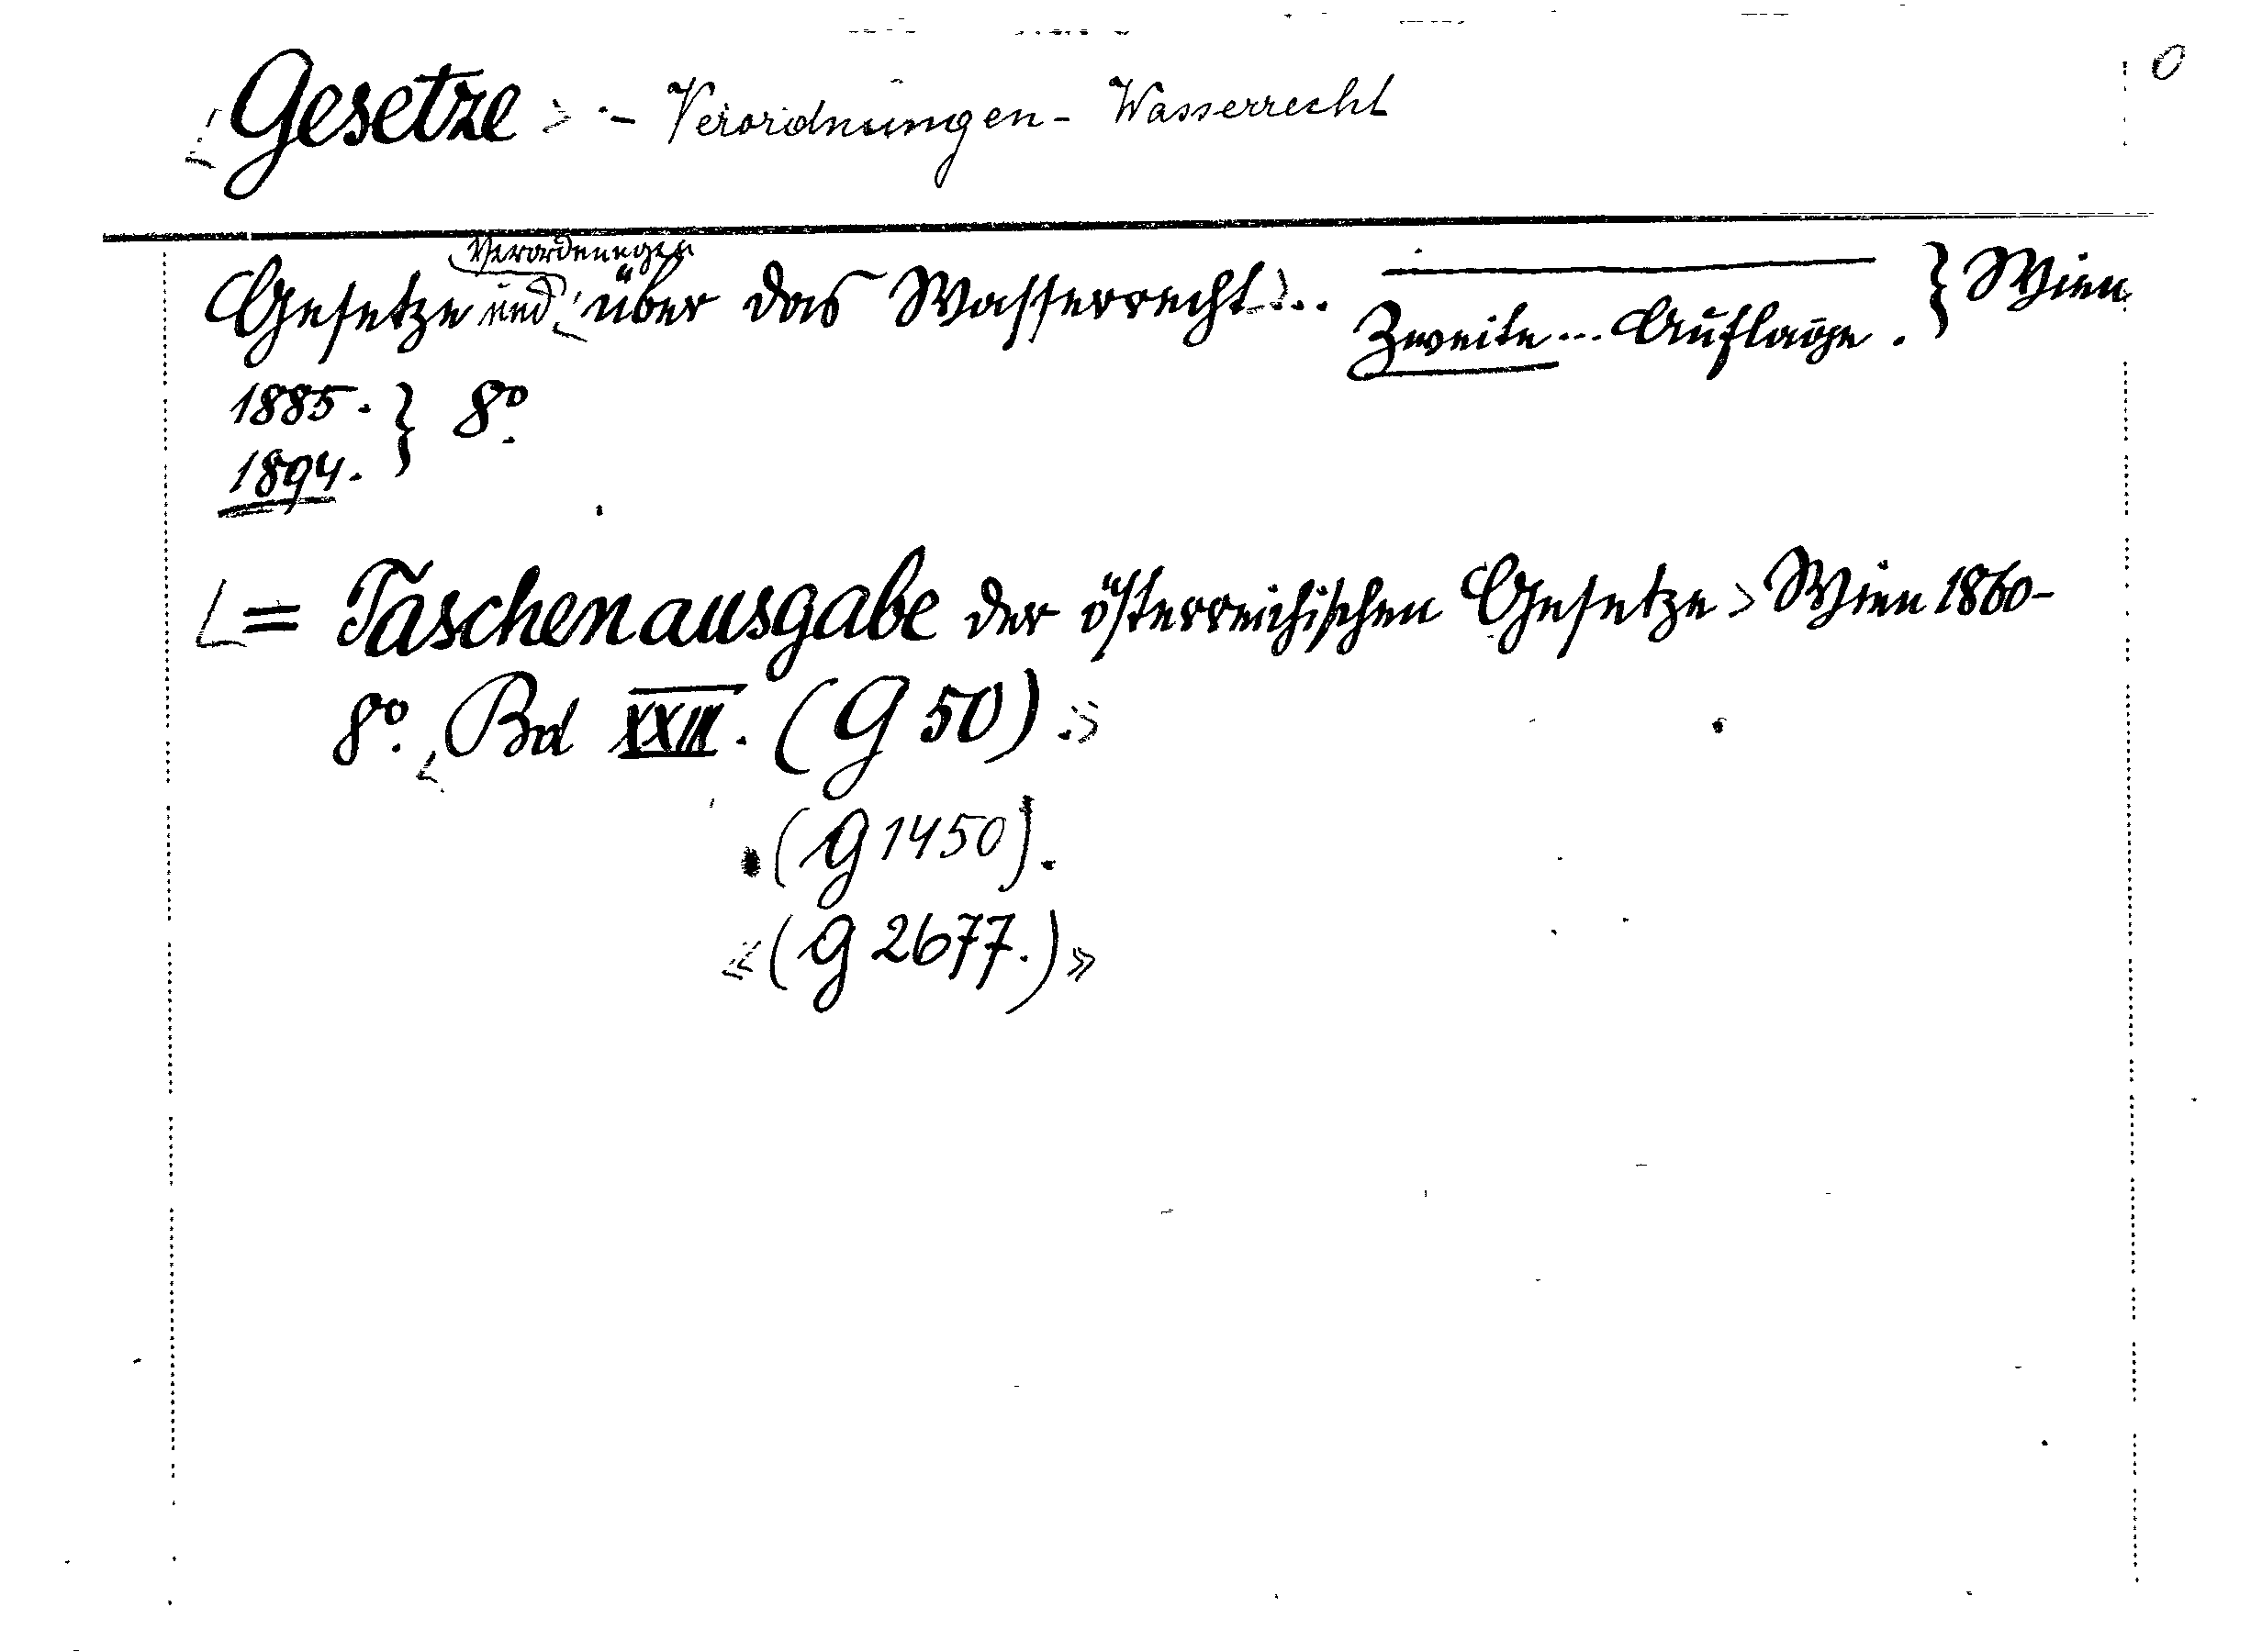 <Gesetze> - Verordnungen - Wasserrecht
0
Verordnungen
Gesetze und über das Wasserrecht>... } Wien
Zweite ... Auflage.
1885. } 8°.
1894.
<= Taschenausgabe der österreichischen Gesetze> Wien 1860-
8°. <Bd XXIII. (G 50).>
(G 1450).
«(G 2677.)»